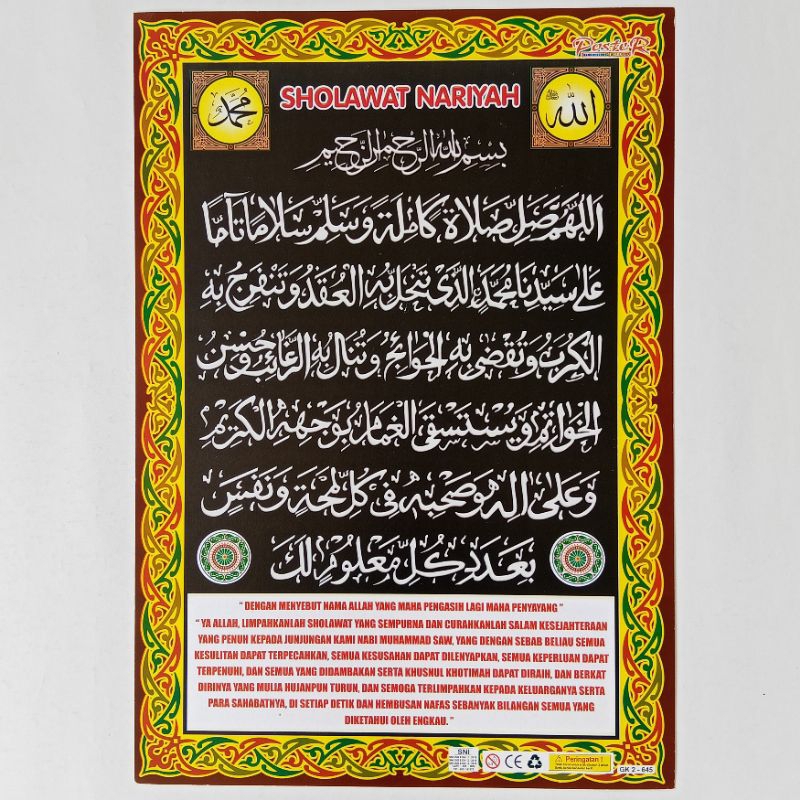 PosteR
محمد
SHOLAWAT NARIYAH
الله
بسم الله الرحمن الرحيم
اَللّٰهُمَّ صَلِّ صَلَاةً كَامِلَةً وَسَلِّمْ سَلَامًا تَآمًّا
عَلٰى سَيِّدِنَا مُحَمَّدٍ الَّذِى تَنْحَلُّ بِهِ الْعُقَدُ وَتَنْفَرِجُ بِهِ
الْكُرَبُ وَتُقْضٰى بِهِ الْحَوَائِجُ وَتُنَالُ بِهِ الرَّغَائِبُ وَحُسْنُ
الْخَوَاتِمِ وَيُسْتَسْقَى الْغَمَامُ بِوَجْهِهِ الْكَرِيْمِ
وَعَلٰى اٰلِهِ وَصَحْبِهِ فِى كُلِّ لَمْحَةٍ وَنَفَسٍ
بِعَدَدِ كُلِّ مَعْلُوْمٍ لَكَ
" DENGAN MENYEBUT NAMA ALLAH YANG MAHA PENGASIH LAGI MAHA PENYAYANG "
" YA ALLAH, LIMPAHKANLAH SHOLAWAT YANG SEMPURNA DAN CURAHKANLAH SALAM KESEJAHTERAAN
YANG PENUH KEPADA JUNJUNGAN KAMI NABI MUHAMMAD SAW, YANG DENGAN SEBAB BELIAU SEMUA
KESULITAN DAPAT TERPECAHKAN, SEMUA KESUSAHAN DAPAT DILENYAPKAN, SEMUA KEPERLUAN DAPAT
TERPENUHI, DAN SEMUA YANG DIDAMBAKAN SERTA KHUSNUL KHOTIMAH DAPAT DIRAIH, DAN BERKAT
DIRINYA YANG MULIA HUJANPUN TURUN, DAN SEMOGA TERLIMPAHKAN KEPADA KELUARGANYA SERTA
PARA SAHABATNYA, DI SETIAP DETIK DAN HEMBUSAN NAFAS SEBANYAK BILANGAN SEMUA YANG
DIKETAHUI OLEH ENGKAU. "
SNI
CE
Peringatan !
GK 2 - 645